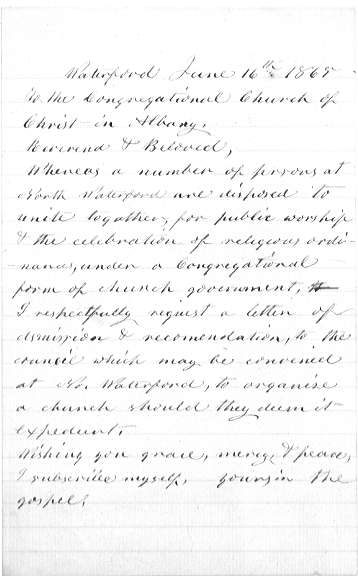 Waterford June 16th 1865
To the Congregational Church of
Christ in Albany,
Reverend & Beloved,
Whereas a number of persons at
North Waterford are disposed to
unite together, for public worship
& the celebration of religious ordi-
nances, under a Congregational
form of church government,
I respectfully request a letter of
dismission & recomendation, to the
council which may be convened
at No. Waterford, to organise
a church should they deem it
expedient.
Wishing you grace, mercy, & peace,
I subscribe myself, yours in the
gospel,